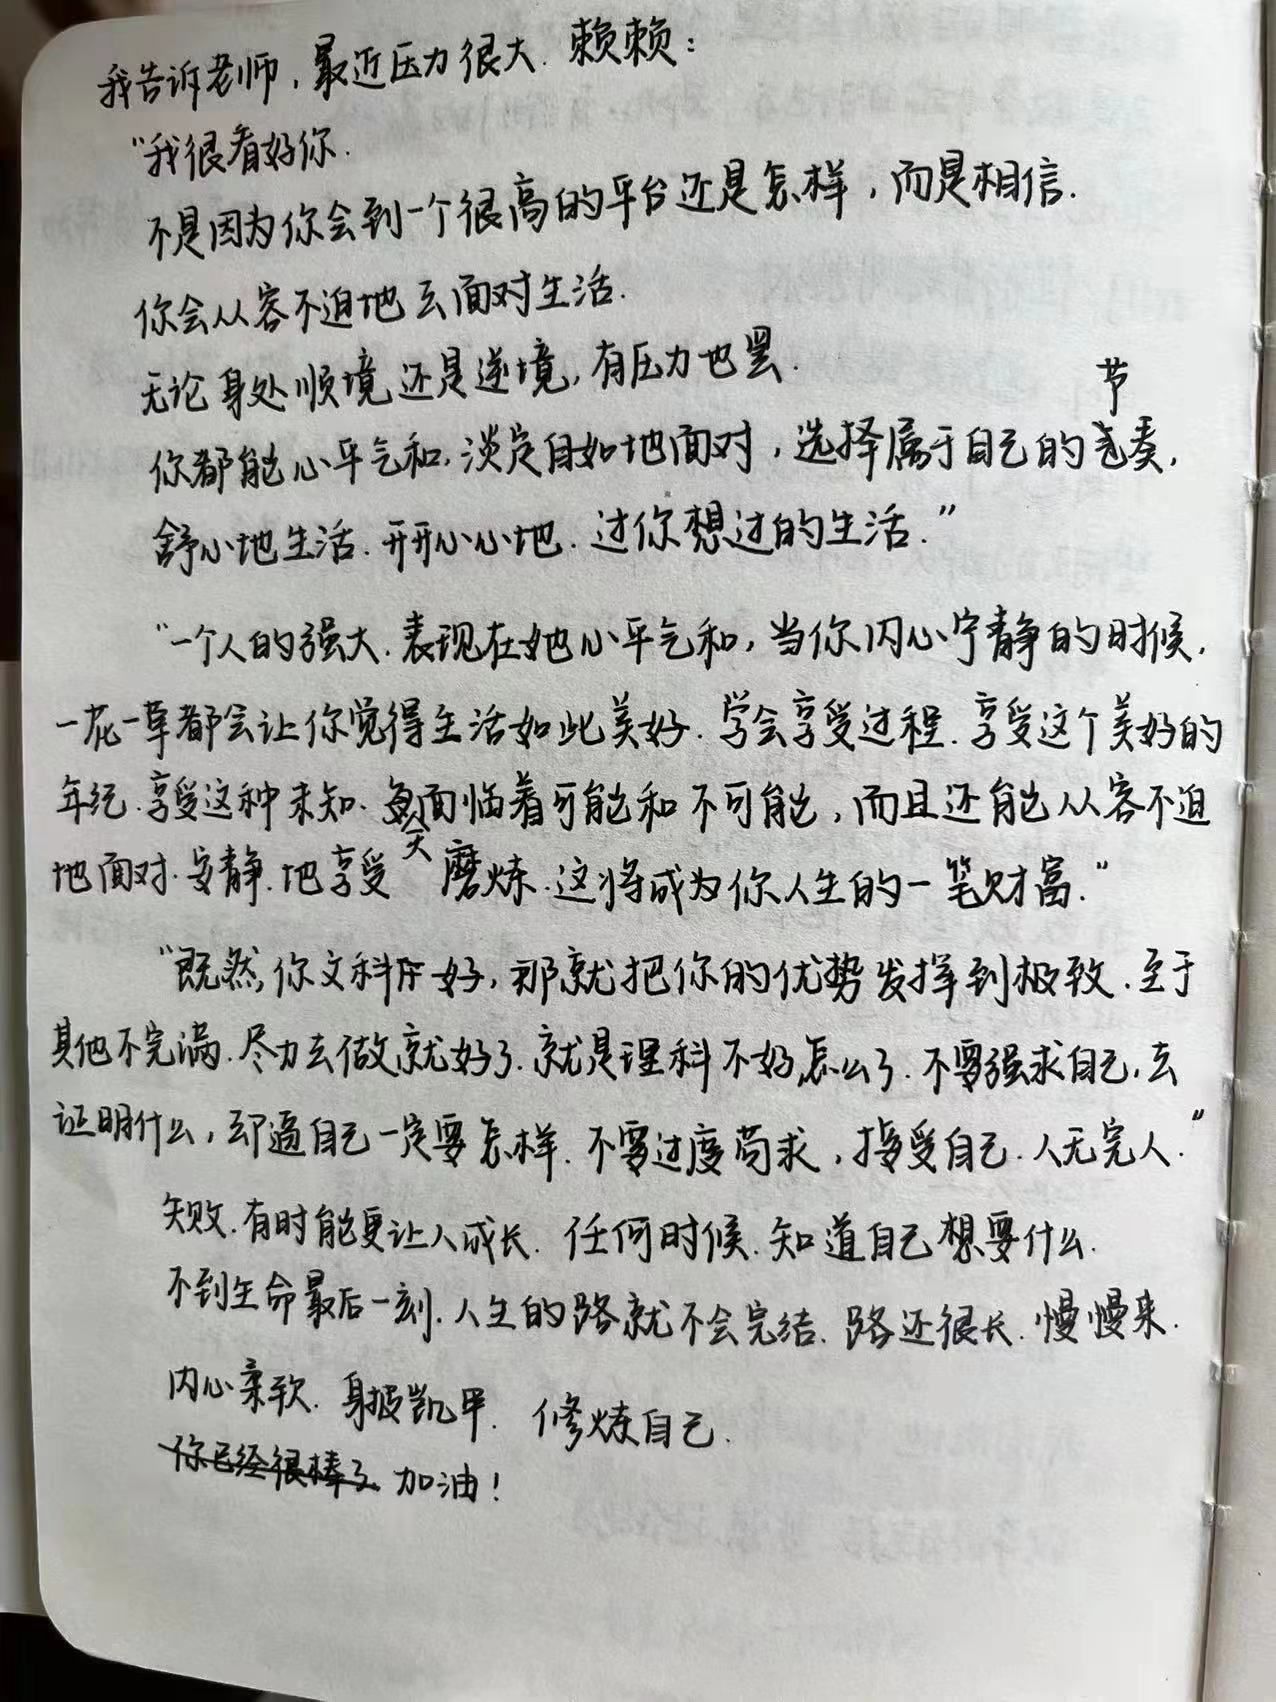 我告诉老师，最近压力很大. 赖赖：
“我很看好你.
不是因为你会到一个很高的平台还是怎样，而是相信.
你会从容不迫地去面对生活.
无论身处顺境还是逆境，有压力也罢.
你都能心平气和，淡定自如地面对，选择属于自己的节奏，
舒心地生活.开开心心地.过你想过的生活.”
“一个人的强大.表现在她心平气和，当你内心宁静的时候，
一花一草都会让你觉得生活如此美好.学会享受过程.享受这个美好的
年纪.享受这种未知.每天面临着可能和不可能，而且还能从容不迫
地面对.安静.地享受磨炼.这将成为你人生的一笔财富.”
“既然,你文科好，那就把你的优势发挥到极致.至于
其他不完满.尽力去做就好了.就是理科不好,怎么了.不要强求自己,去
证明什么，却逼自己一定要怎样.不要过度苛求，接受自己.人无完人.”
失败.有时能更让人成长. 任何时候.知道自己想要什么.
不到生命最后一刻.人生的路就不会完结.路还很长.慢慢来.
内心柔软.身披凯甲. 修炼自己.
你已经很棒了 加油！